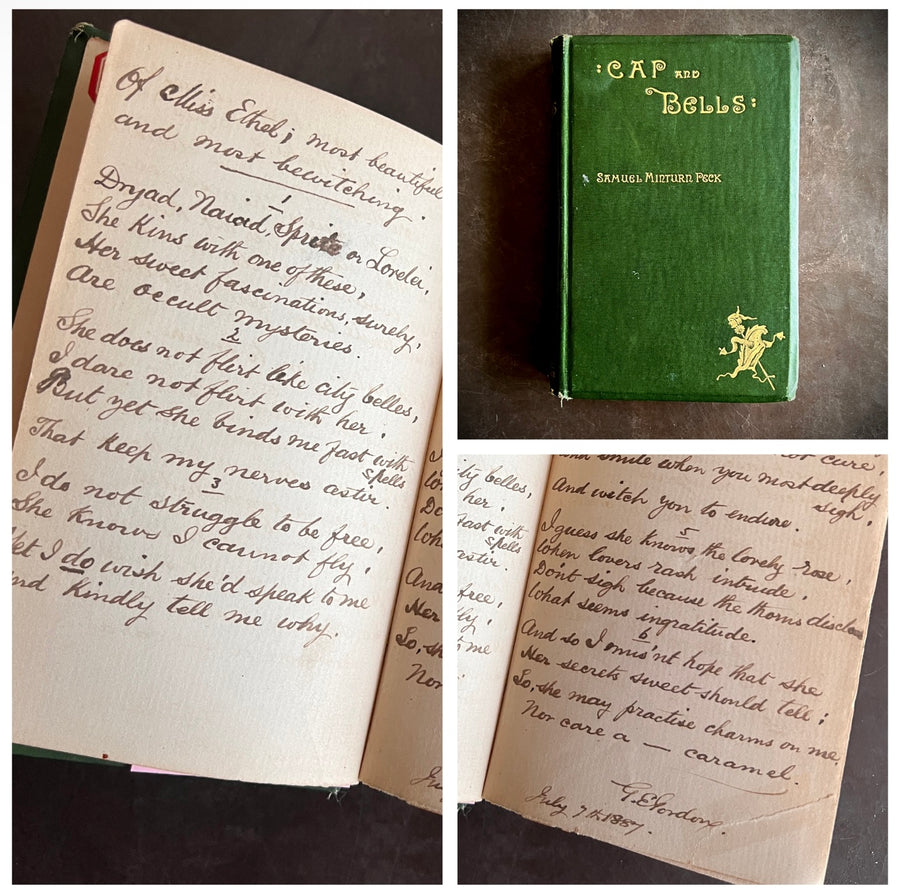 Of Miss Ethel; most beautiful
and most bewitching.
1
Dryad, Naiad, Sprite or Lorelei,
She Kins with one of these,
Her sweet fascinations, surely,
Are occult mysteries.
2
She does not flirt like city belles,
I dare not flirt with her.
But yet she binds me fast with
spells
That keep my nerves astir.
3
I do not struggle to be free,
She knows I cannot fly.
Yet I do wish she'd speak to me
And Kindly tell me why.
: CAP AND
BELLS :
SAMUEL MINTURN PECK
and smile when you most deeply
sigh,
And witch you to endure.
5
I guess she knows, the lovely rose,
When lovers rash intrude,
Don't sigh because the thorns disclose
What seems ingratitude.
6
And so I mus'nt hope that she
Her secrets sweet should tell;
So, she may practise charms on me,
Nor care a — caramel.
G.E. Gordon.
July 7th 1887.